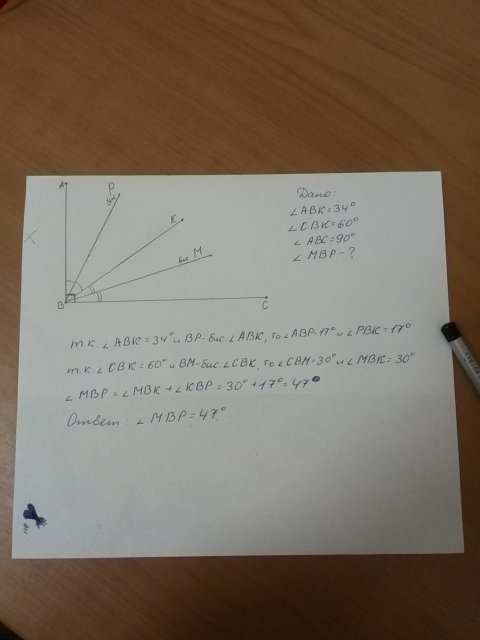 A
P
бис
K
бис M
B
C
Дано:
∠ABK=34°
∠CBK=60°
∠ABC=90°
∠MBP-?
т.к. ∠ABK=34° и BP-бис. ∠ABK, то ∠ABP=17° и ∠PBK=17°
т.к. ∠CBK=60° и BM-бис. ∠CBK, то ∠CBM=30° и ∠MBK=30°
∠MBP=∠MBK+∠KBP=30°+17°=47°
Ответ: ∠MBP=47°